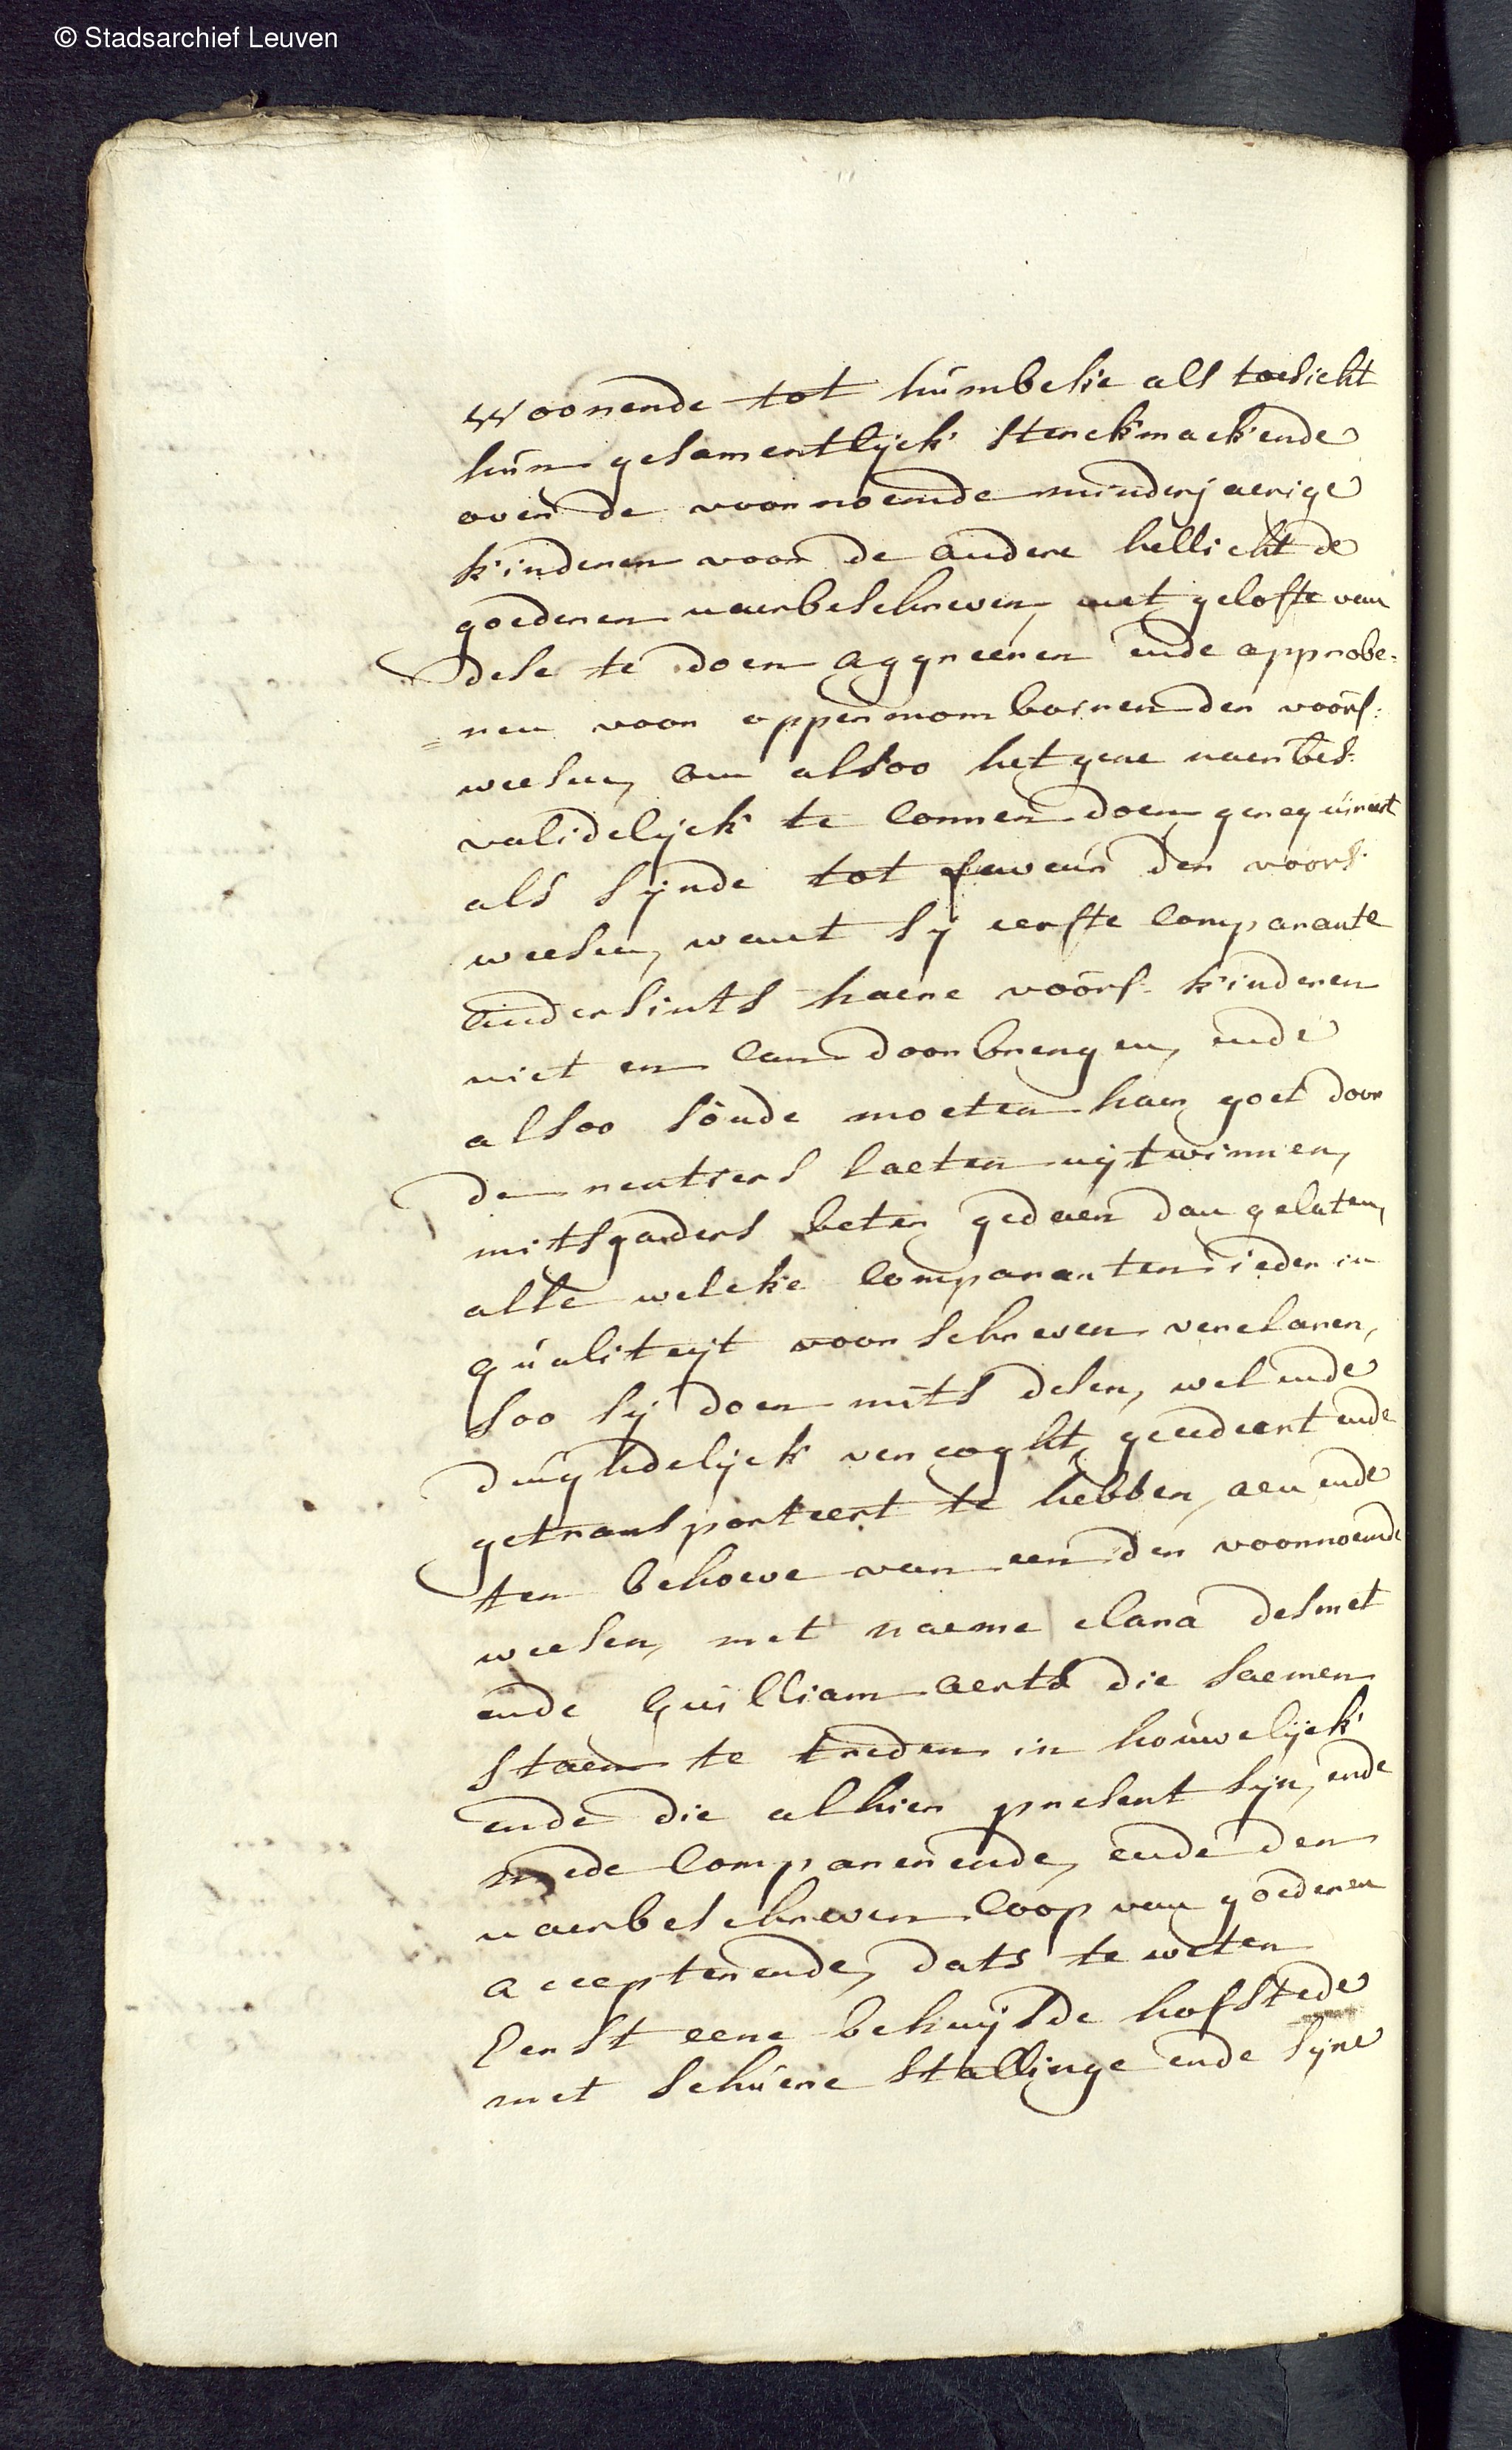 © Stadsarchief Leuven
woonende tot húmbeke als toesicht
hún gesamentlijck sterckmackende
over de voornoemde minderjaerige
kinderen voor de andere hellicht de
goederen naerbeschreven, met gelofte van
dese te doen aggreëren ende approbe=
=ren voor oppermomboiren der voors:
weesen, om alsoo het gene naerbes:
validelijck te connen doen gerequireert
als sijnde tot faveúr der voors:
weesen, want sij eerste comparante
andersints haere voors: kinderen
niet en can doorbrengen, ende
alsoo soude moeten haer goet door
de rentiers laeten uijtwinnen,
mitsgaders beter gedaen dan gelaten,
alle welcke comparanten ieder in
qúaliteijt voorschreven verclaren,
soo sij doen mits desen, wel ende
deúghdelijck vercoght, gecedeert ende
getransporteert te hebben, aen ende
ten behoeve van een der voornoemde
weesen, met naeme clara desmet
ende guilliam aerts die saemen
staen te treden in houwelijck
ende die alhier present sijn, ende
mede comparerende, ende den
naerbeschreven coop van goederen
accepterende, dats te weten
Eerst eene behuijsde hofstede
met schúere stallinge ende sijne